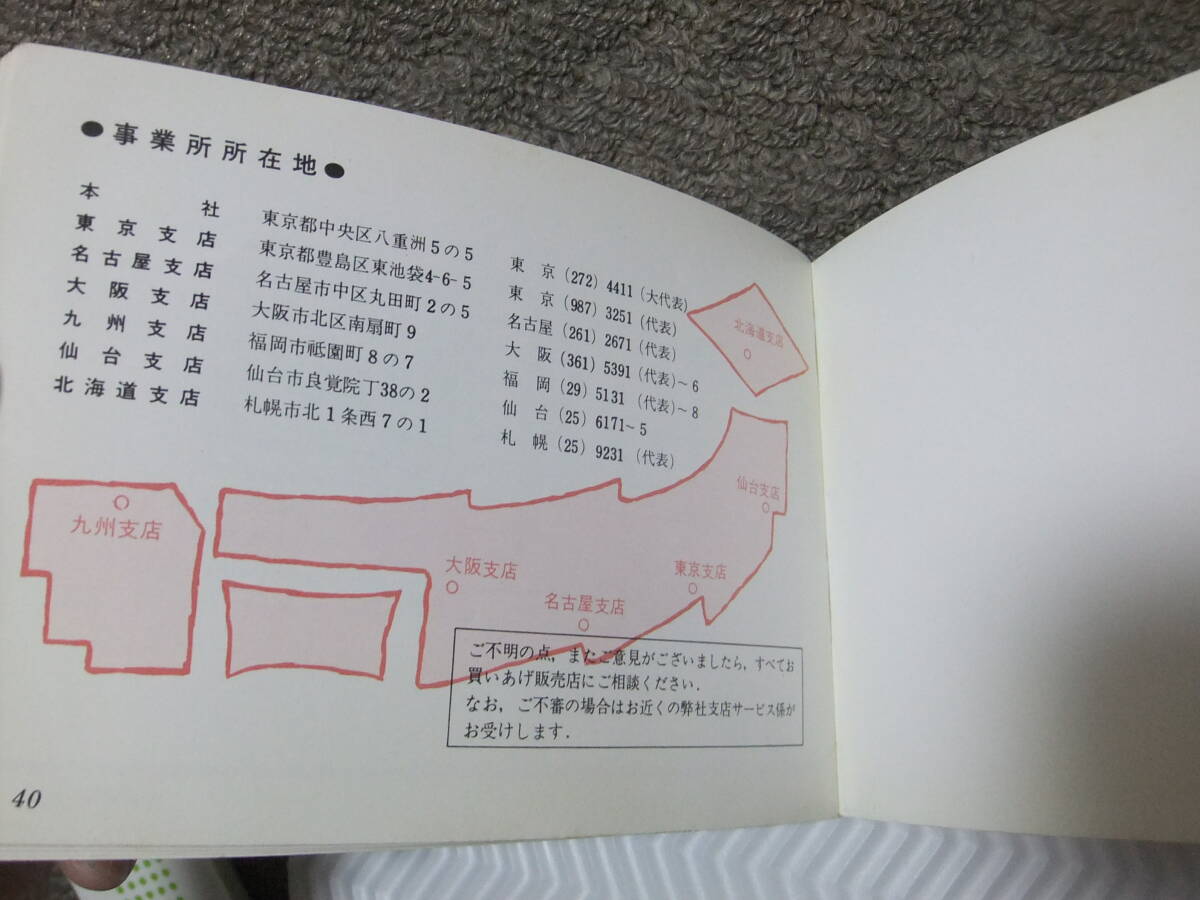 ●事業所所在地●
本社 東京都中央区八重洲5の5 東京(272)4411(大代表)
東京支店 東京都豊島区東池袋4-6-5 東京(987)3251(代表)
名古屋支店 名古屋市中区丸田町2の5 名古屋(261)2671(代表)
大阪支店 大阪市北区南扇町9 大阪(361)5391(代表)~6
九州支店 福岡市祇園町8の7 福岡(29)5131(代表)~8
仙台支店 仙台市良覚院丁38の2 仙台(25)6171~5
北海道支店 札幌市北1条西7の1 札幌(25)9231(代表)
北海道支店
仙台支店
九州支店
大阪支店
東京支店
名古屋支店
ご不明の点,またご意見がございましたら,すべてお
買いあげ販売店にご相談ください.
なお,ご不審の場合はお近くの弊社支店サービス係が
お受けします.
40